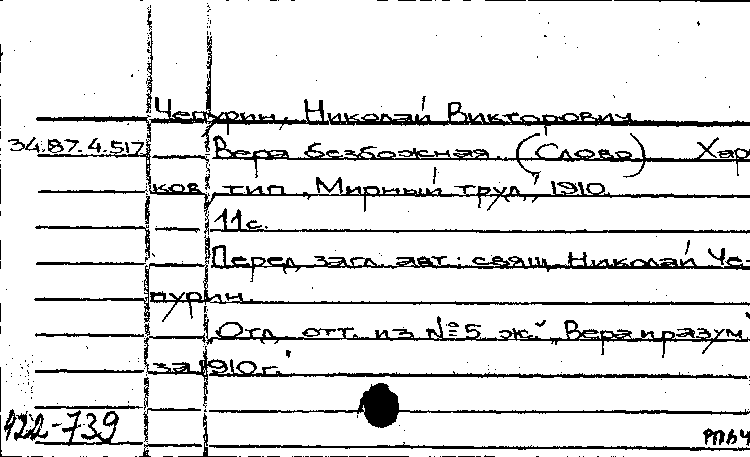 Чепурин, Николай Викторович
34.87.4.517 Вера безбожная. (Слово) Хар
ков, тип. „Мирный труд,“ 1910.
11 с.
Перед загл. авт.: свящ. Николай Че-
пурин.
„Отд. отт. из №5 ж. „Вера и разум“
за 1910 г.“
422-739
РПБЧ